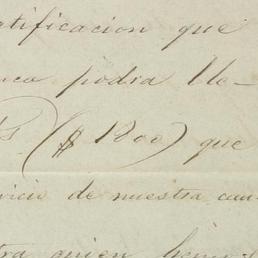 atificacion que
nca podia lle-
Ps. ($1800) que
vicio de nuestra cau
tra quien